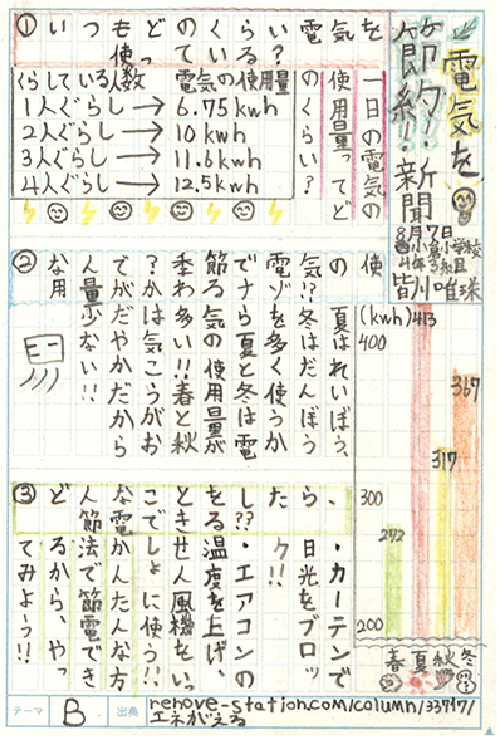 電気を
節約!新聞
8月7日
4年3組
皆川唯珠
①いつもどのくらい電気を
使っている?
一日の電気の
使用量ってど
のくらい?
くらしている人数 電気の使用量
1人ぐらし→6.75kwh
2人ぐらし→10kwh
3人ぐらし→11.6kwh
4人ぐらし→12.5kwh
②なんで?季節で電気の使
用量がかわるナゾ!?
夏はれいぼう、
冬はだんぼう
を多く使うか
ら夏と冬は電
気の使用量が
多い!!春と秋
は気こうがお
だやかだから
少ない!!
(kwh)
400
300
200
272
413
317
367
春 夏 秋 冬
③どんなことをしたら、
節電できる??
・カーテンで
日光をブロッ
ク!!
・エアコンの
温度を上げ、
せん風機をいっ
しょに使う!!
かんたんな方
法で節電でき
るから、やっ
てみよう!!
テーマ B 出典 renove-station.com/column/33717/
エネがえる